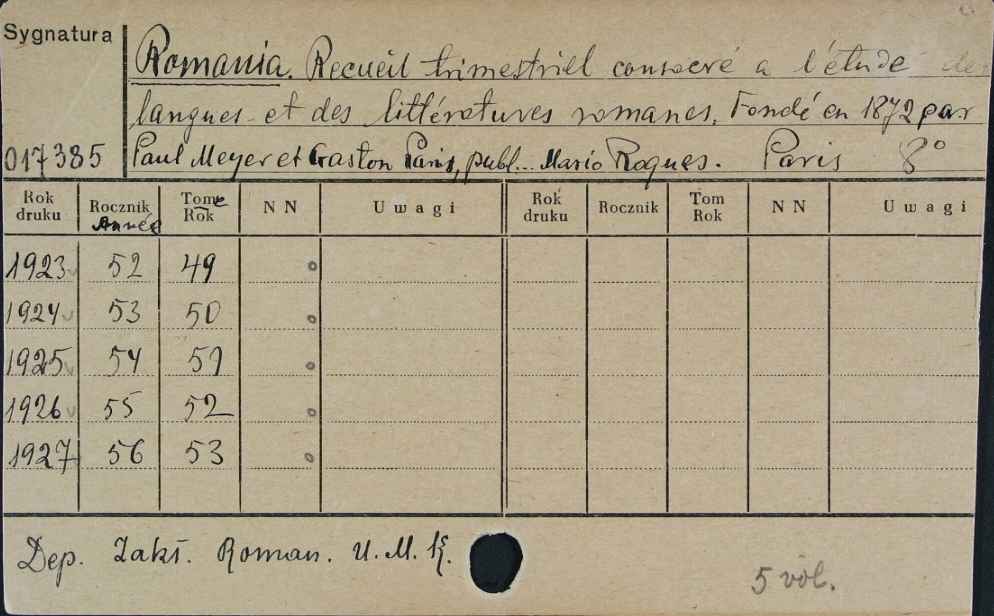 Sygnatura
Romania. Recueil trimestriel consacré a l'étude des
langues et des littératures romanes. Fondé en 1872 par
017385 Paul Meyer et Gaston Paris, publ... Mario Roques. Paris 8°
Rok druku Rocznik Année Tome Rok NN Uwagi Rok druku Rocznik Tom Rok NN Uwagi
1923 52 49
1924 53 50
1925 54 51
1926 55 52
1927 56 53
Dep. Zakł. Roman. U.M.K.
5 vol.